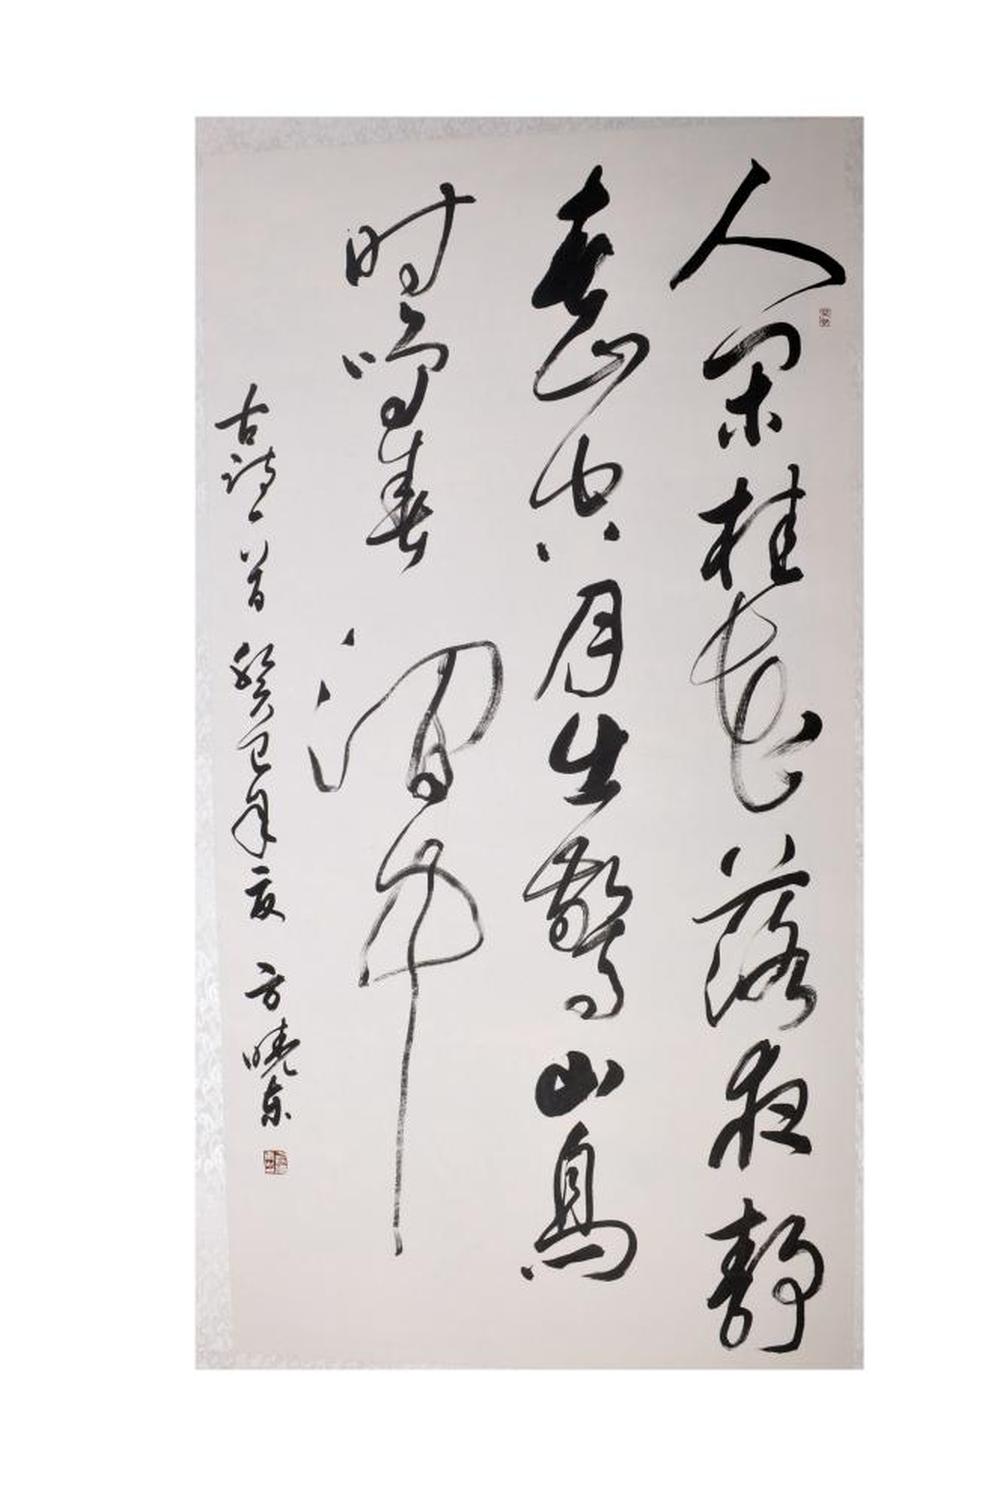 人闲桂花落夜静
春山空月出驚山鳥
时鸣春涧中
古詩一首 癸巳年夏 方曉东